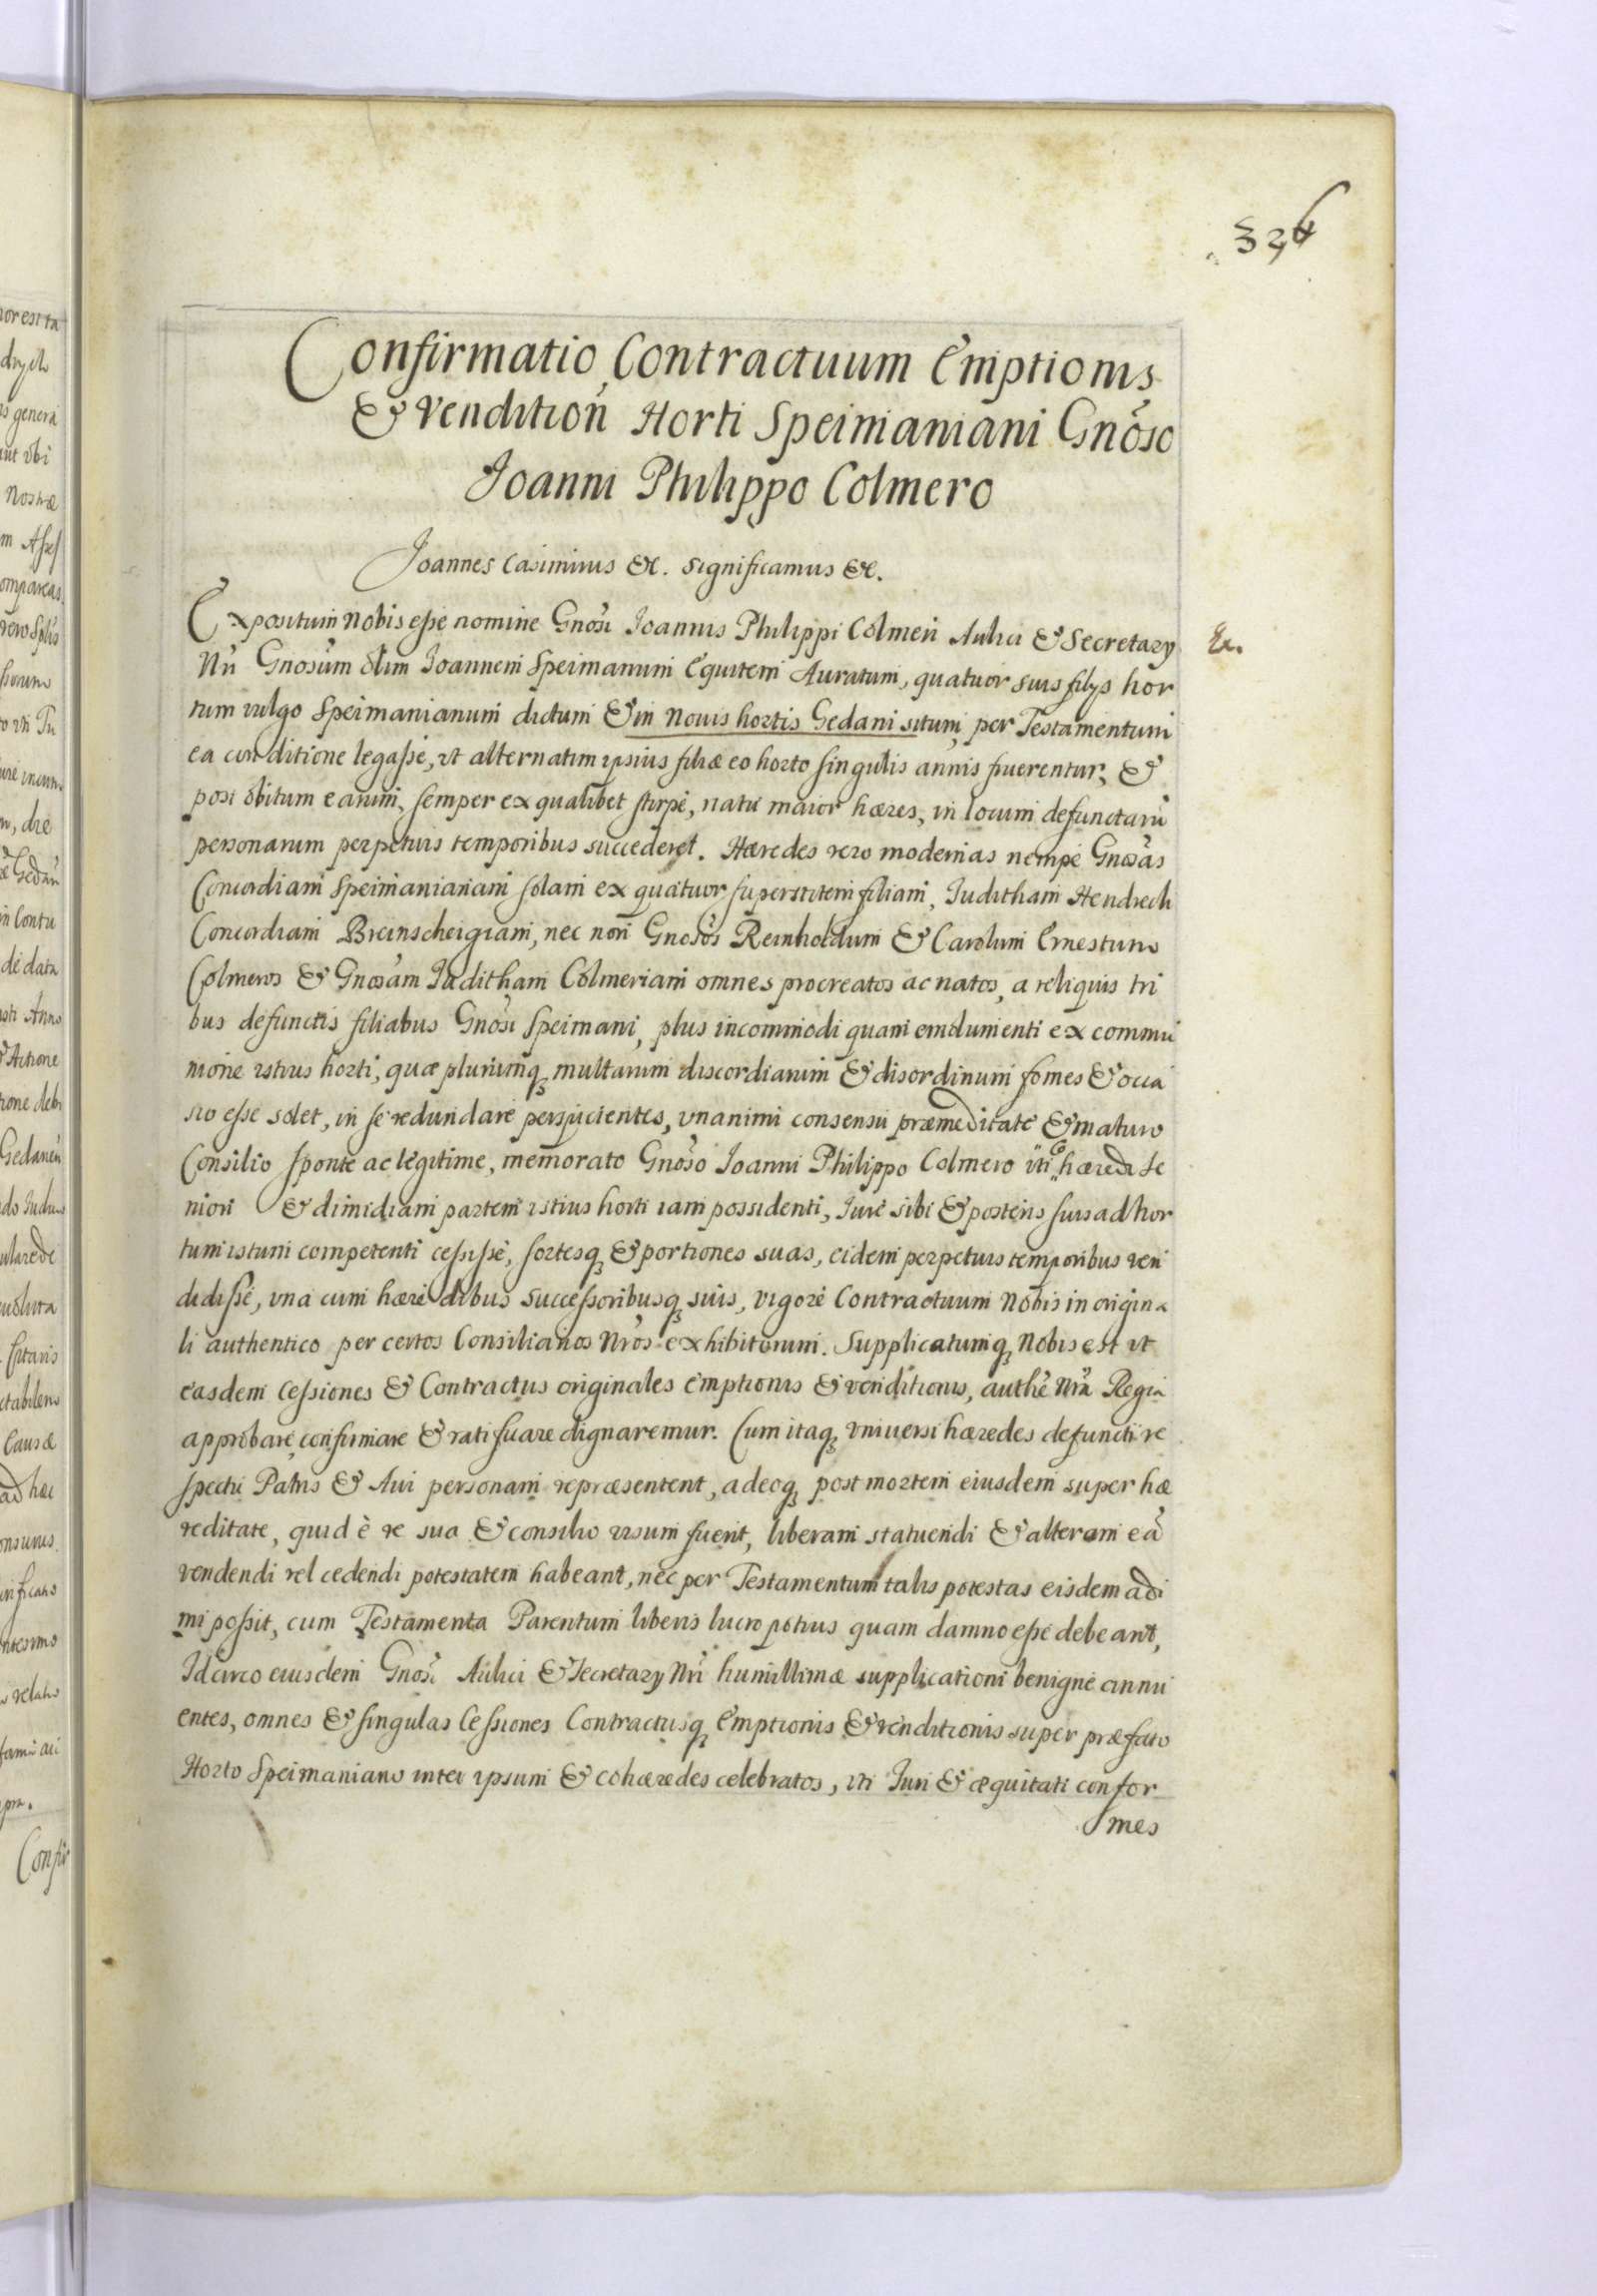 326
Confirmatio Contractuum Emptionis
& venditioñ Horti Speimaniani Gnoso
Joanni Philippo Colmero
Joannes Casimirus &c. significamus &c.
Expositum nobis esse nomine Gnosi Joannis Philippi Colmeri Aulici & Secretary
Nri Gnosum olim Joannem Speimanum Equitem Auratum, quatuor suis filys hor
tum vulgo Speimanianum dictum & in Novis hortis Gedani situm, per Testamentum
ea conditione legasse, vt alternatim ipsius filiæ eo horto singulis annis fruerentur, &
post obitum earum, semper ex qualibet stirpe, natu maior hæres, in locum defunctarũ
personarum perpetuis temporibus succederet. Hæredes vero modernas nempe Gnosas
Concordiam Speimanianam solam ex quatuor superstitem filiam, Juditham Hendrech
Concordiam Breinscheigiam, nec non Gnosos Reinholdum & Carolum Ernestum
Colmeros & Gnosam Juditham Colmeriam omnes procreatos ac natos, a reliquis tri
bus defunctis filiabus Gnosi Speimani, plus incommodi quam emolumenti ex commu
nione istius horti, quæ plurimq multarum discordiarum & disordinum fomes & occa
sio esse solet, in se redundare perspicientes, vnanimi consensu præmeditate & maturo
Consilio sponte ac legitime, memorato Gnoso Joanni Philippo Colmero vti Cohæredi se
niori & dimidiam partem istius horti iam possidenti, Jure sibi & posteris suis ad hor
tum istum competenti cessisse, sortesq & portiones suas, eidem perpetuis temporibus ven
didisse, vna cum hære dibus successoribusq suis, vigore Contractuum Nobis in origina
li authentico per certos Consiliarios Nros exhibitorum. Supplicatumq Nobis est vt
easdem Cessiones & Contractus originales emptionis & venditionis, authẽ Nra Regia
approbare, confirmare & ratificare dignaremur. Cum itaq vniversi hæredes defuncti re
spectu Patris & Avi personam repræsentent, adeoq post mortem eiusdem super hæ
reditate, quid è re sua & consilio visum fuerit, liberam statuendi & alteram eã
vendendi vel cedendi potestatem habeant, nec per Testamentum talis potestas eisdem adi
mi possit, cum Testamenta Parentum liberis lucro potius quam damno esse debeant,
Idcirco eiusdem Gnosi Aulici & Secretary Nri humillimæ supplicationi benigne annu
entes, omnes & singulas Cessiones Contractusq Emptionis & venditionis super præfato
Horto Speimaniano inter ipsum & cohæredes celebratos, vti Juri & æquitati confor
mes